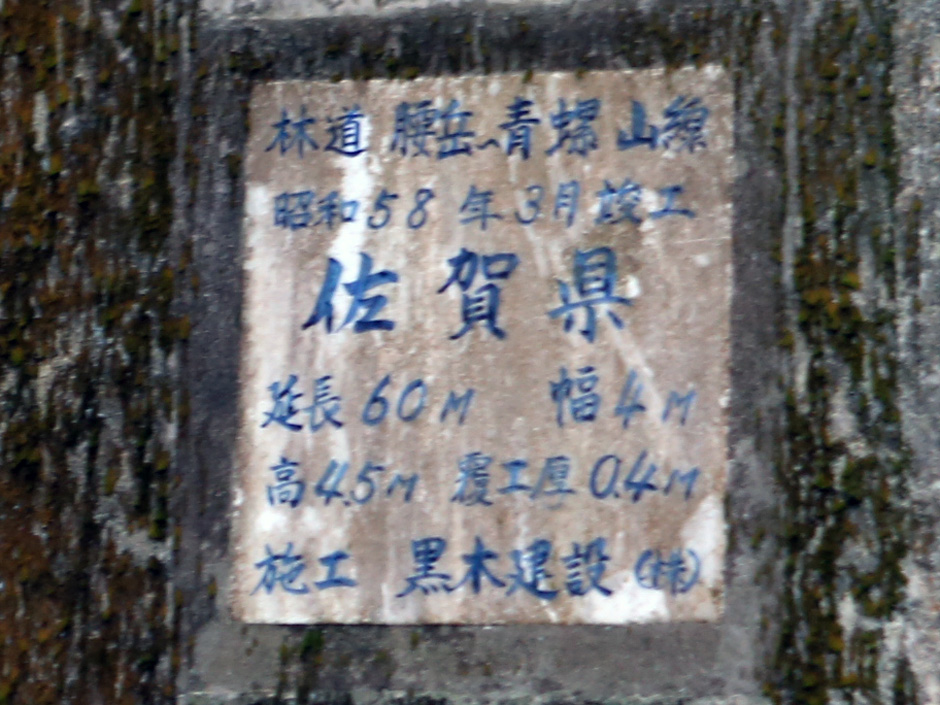 林道 腰岳～青螺山線
昭和58年3月竣工
佐賀県
延長60M 幅4M
高4.5M 覆工厚0.4M
施工 黒木建設(株)